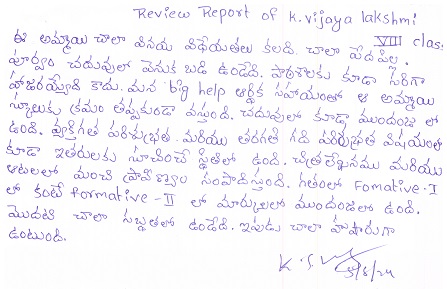 Review Report of K.vijaya lakshmi
VIII class.
ఈ అమ్మాయి చాలా వినయ విధేయతలు కలది. చాలా పేదపిల్ల.
పూర్వం చదువులో వెనుక బడి ఉండేది. పాఠశాలకు కూడా సరిగా
హాజరయ్యేది కాదు. మన big help ఆర్థిక సహాయంతో ఆ అమ్మాయి
స్కూలుకు క్రమం తప్పకుండా వస్తుంది. చదువులో కూడా ముందంజ లో
ఉంది. వ్యక్తిగత పరిశుభ్రత. మరియు తరగతి గది పరిశుభ్రత విషయంలో
కూడా ఇతరులకు సూచించే స్థితిలో ఉంది. చిత్రలేఖనము మరియు
ఆటలలో మంచి ప్రావీణ్యం సంపాదిస్తుంది. గతంలో Fomative-I
లో కంటే formative-II లో మార్కులలో ముందంజలో ఉంది.
మొదటి చాలా నిబ్ధతలో ఉండేది. ఇపుడు చాలా హుషారుగా
ఉంటుంది.